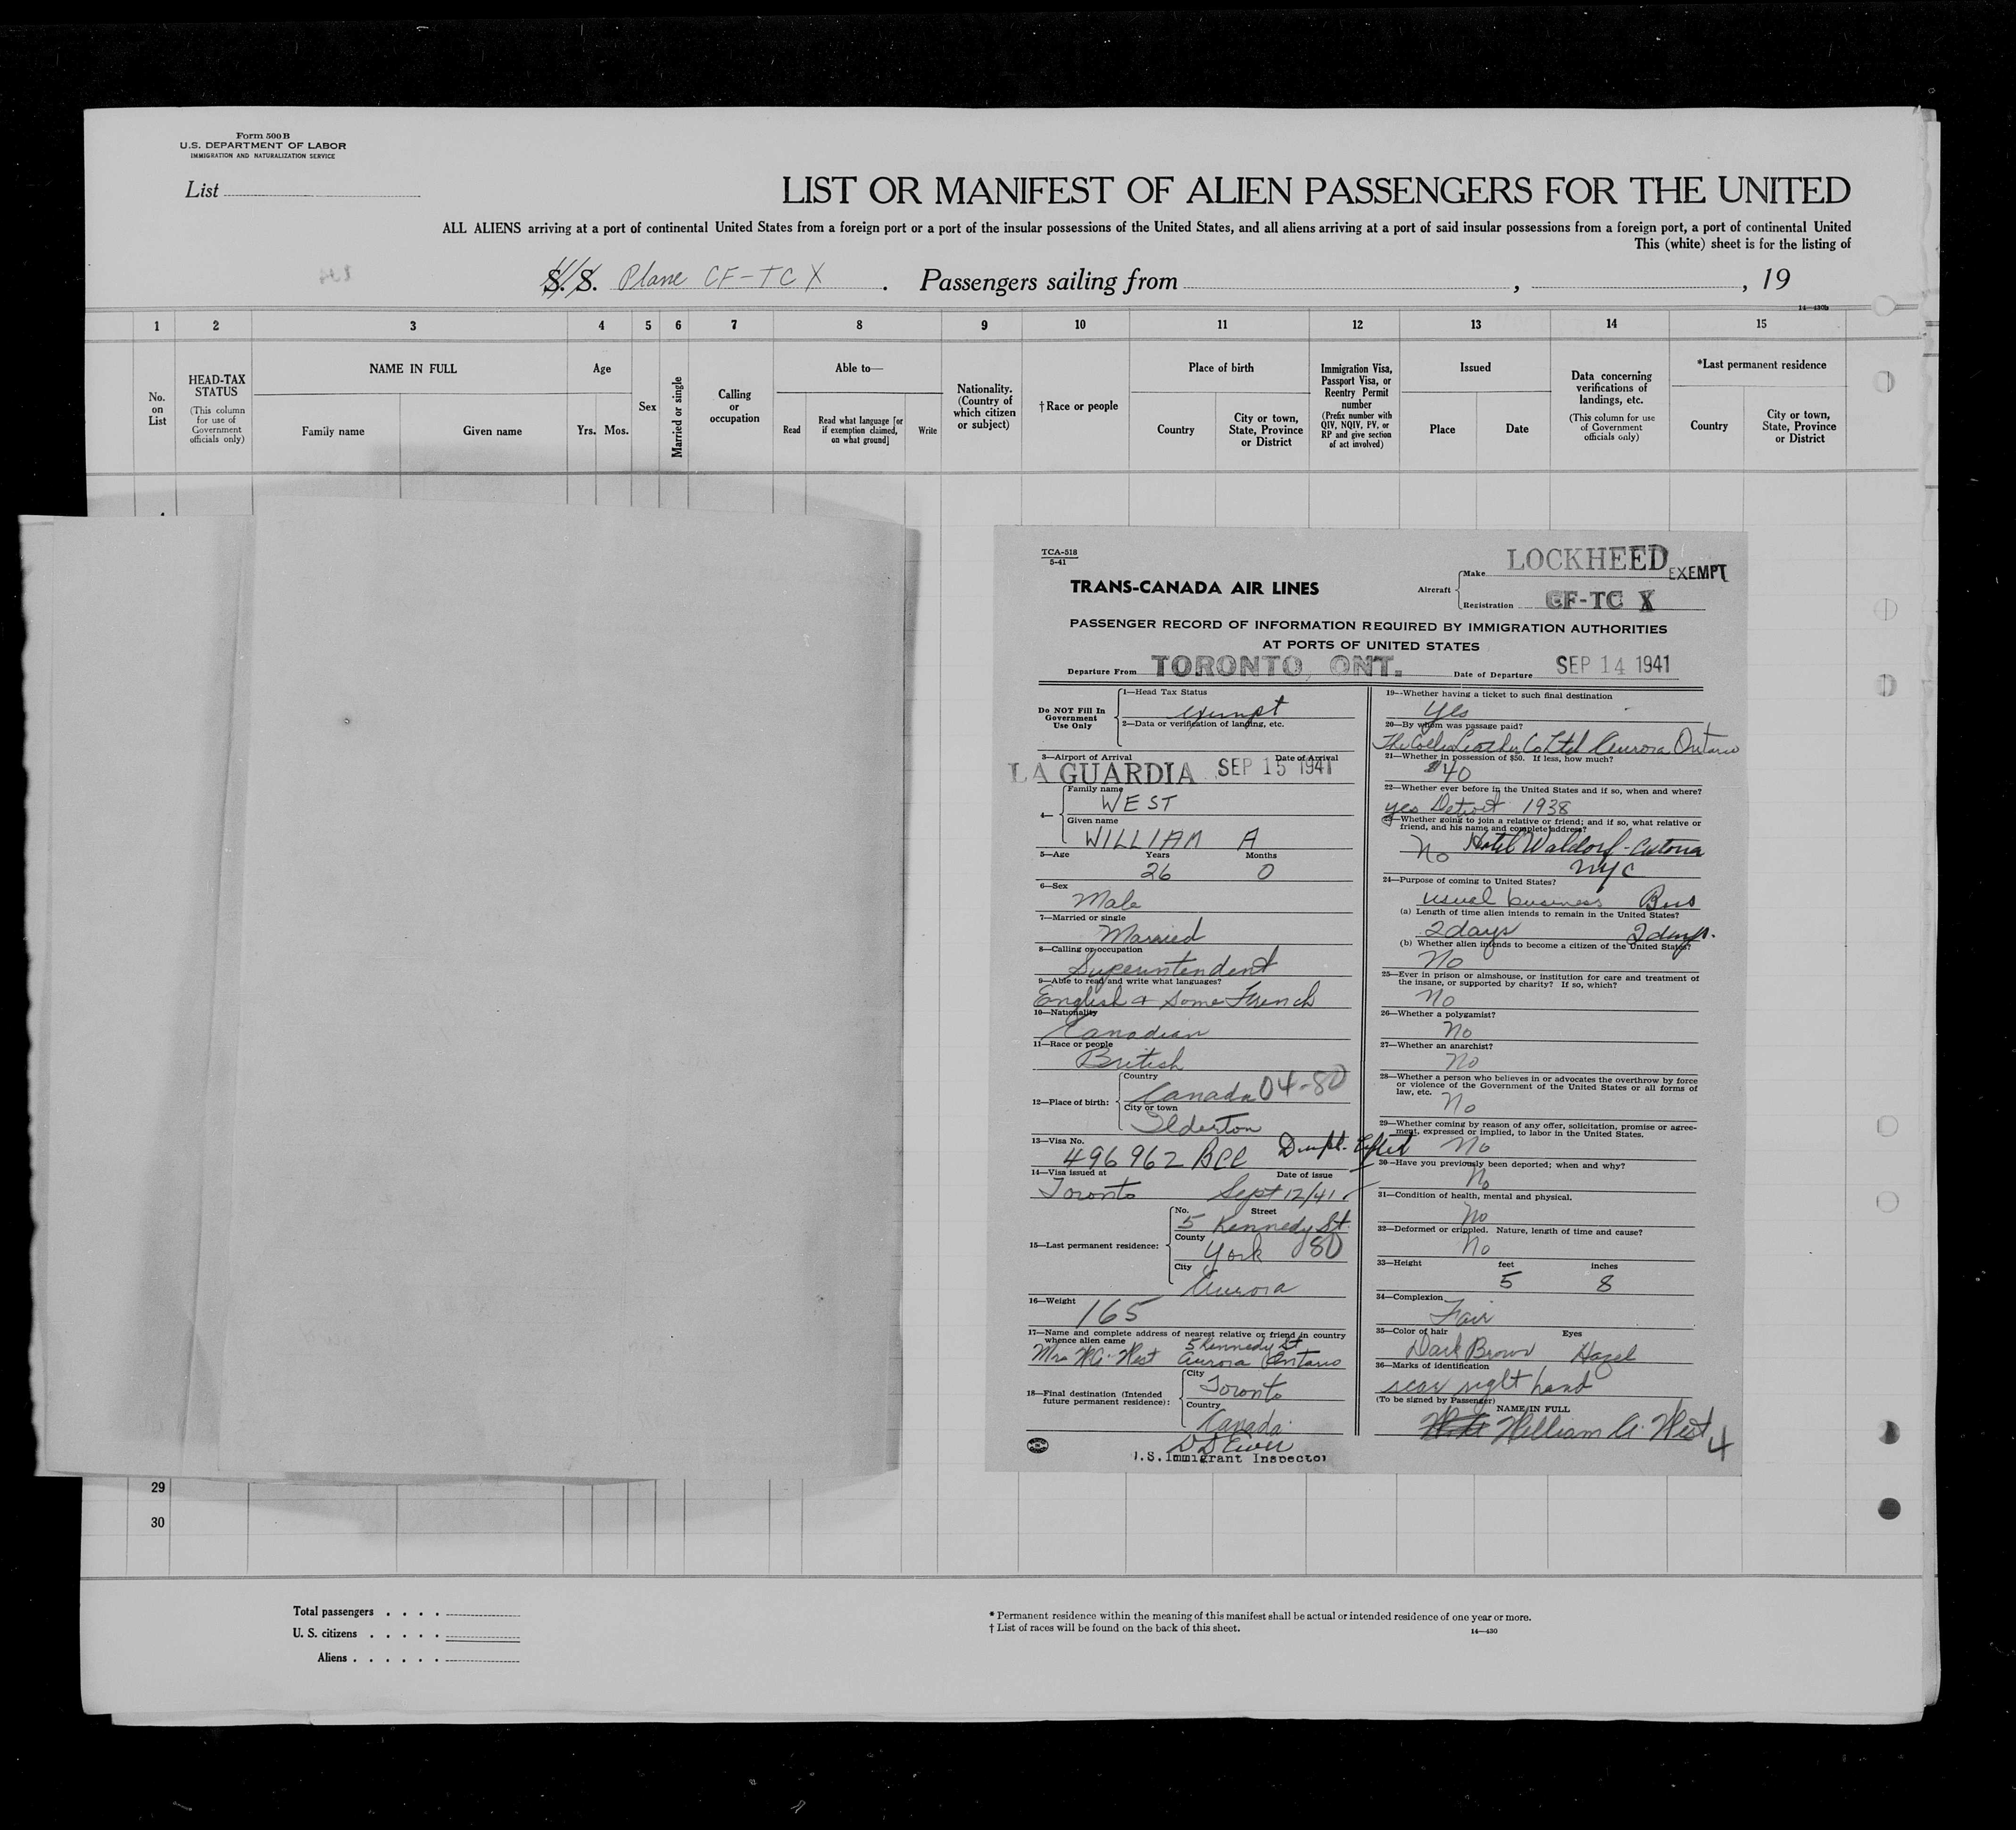 Form 500 B
U.S. DEPARTMENT OF LABOR
IMMIGRATION AND NATURALIZATION SERVICE
List
LIST OR MANIFEST OF ALIEN PASSENGERS FOR THE UNITED
ALL ALIENS arriving at a port of continental United States from a foreign port or a port of the insular possessions of the United States, and all aliens arriving at a port of said insular possessions from a foreign port, a port of continental United
This (white) sheet is for the listing of
S. S. Plane CF-TC X . Passengers sailing from , , 19
14—430b
1 2 3 4 5 6 7 8 9 10 11 12 13 14 15
No. on List
HEAD-TAX STATUS
(This column for use of Government officials only)
NAME IN FULL
Family name Given name
Age
Yrs. Mos.
Sex
Married or single
Calling or occupation
Able to—
Read
Read what language [or if exemption claimed, on what ground]
Write
Nationality. (Country of which citizen or subject)
† Race or people
Place of birth
Country
City or town, State, Province or District
Immigration Visa, Passport Visa, or Reentry Permit number
(Prefix number with QIV, NQIV, PV, or RP and give section of act involved)
Issued
Place Date
Data concerning verifications of landings, etc.
(This column for use of Government officials only)
*Last permanent residence
Country
City or town, State, Province or District
TCA-518
5-41
TRANS-CANADA AIR LINES
Aircraft
Make LOCKHEED
EXEMPT
Registration CF-TC X
PASSENGER RECORD OF INFORMATION REQUIRED BY IMMIGRATION AUTHORITIES
AT PORTS OF UNITED STATES
Departure From TORONTO, ONT. Date of Departure SEP 14 1941
Do NOT Fill In Government Use Only
1—Head Tax Status
exempt
2—Data or verification of landing, etc.
3—Airport of Arrival Date of Arrival
LA GUARDIA SEP 15 1941
4—
Family name
WEST
Given name
WILLIAM A
5—Age Years Months
26 0
6—Sex
Male
7—Married or single
Married
8—Calling or occupation
Superintendent
9—Able to read and write what languages?
English & Some French
10—Nationality
Canadian
11—Race or people
British
12—Place of birth:
Country
Canada 04-80
City or town
Ilderton
13—Visa No.
496962 BCC Dupl. Lifted
14—Visa issued at Date of issue
Toronto Sept 12/41
15—Last permanent residence:
No. Street
5 Kennedy St.
County
York 80
City
Aurora
16—Weight
165
17—Name and complete address of nearest relative or friend in country whence alien came
5 Kennedy St
Mrs W.A. West Aurora Ontario
18—Final destination (Intended future permanent residence):
City
Toronto
Country
Canada
U.S. Immigrant Inspector
19—Whether having a ticket to such final destination
Yes
20—By whom was passage paid?
The Collis Leather Co Ltd Aurora Ontario
21—Whether in possession of $50. If less, how much?
$40
22—Whether ever before in the United States and if so, when and where?
yes Detroit 1938
23—Whether going to join a relative or friend; and if so, what relative or friend, and his name and complete address?
No Hotel Waldorf-Astoria
NYC
24—Purpose of coming to United States?
usual business Bus
(a) Length of time alien intends to remain in the United States?
2 days 2 days.
(b) Whether alien intends to become a citizen of the United States?
No
25—Ever in prison or almshouse, or institution for care and treatment of the insane, or supported by charity? If so, which?
No
26—Whether a polygamist?
No
27—Whether an anarchist?
No
28—Whether a person who believes in or advocates the overthrow by force or violence of the Government of the United States or all forms of law, etc.
No
29—Whether coming by reason of any offer, solicitation, promise or agreement, expressed or implied, to labor in the United States.
No
30—Have you previously been deported; when and why?
No
31—Condition of health, mental and physical.
No
32—Deformed or crippled. Nature, length of time and cause?
No
33—Height feet inches
5 8
34—Complexion
Fair
35—Color of hair Eyes
Dark Brown Hazel
36—Marks of identification
scar right hand
(To be signed by Passenger)
NAME IN FULL
William A. West
4
29
30
Total passengers . . . .
U. S. citizens . . . . .
Aliens . . . . . .
* Permanent residence within the meaning of this manifest shall be actual or intended residence of one year or more.
† List of races will be found on the back of this sheet.
14—430